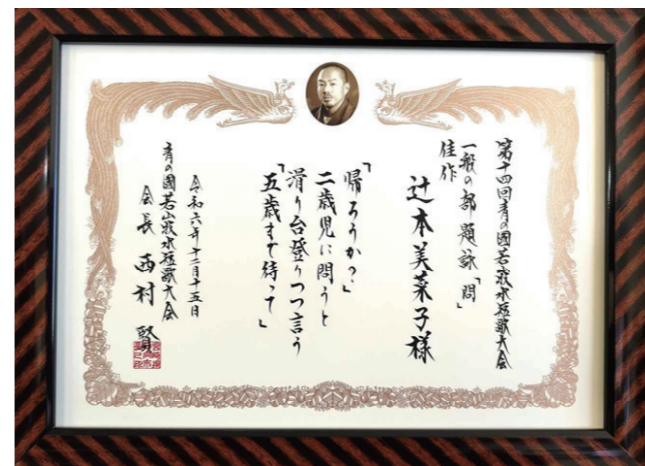 第十四回青の國若山牧水短歌大会
一般の部 題詠「問」
佳作
辻本美菜子様
「帰ろうか？」
二歳児に問うと
滑り台登りつつ言う
「五歳まで待って」
令和六年十二月十五日
青の國若山牧水短歌大会
会長 西村 賢